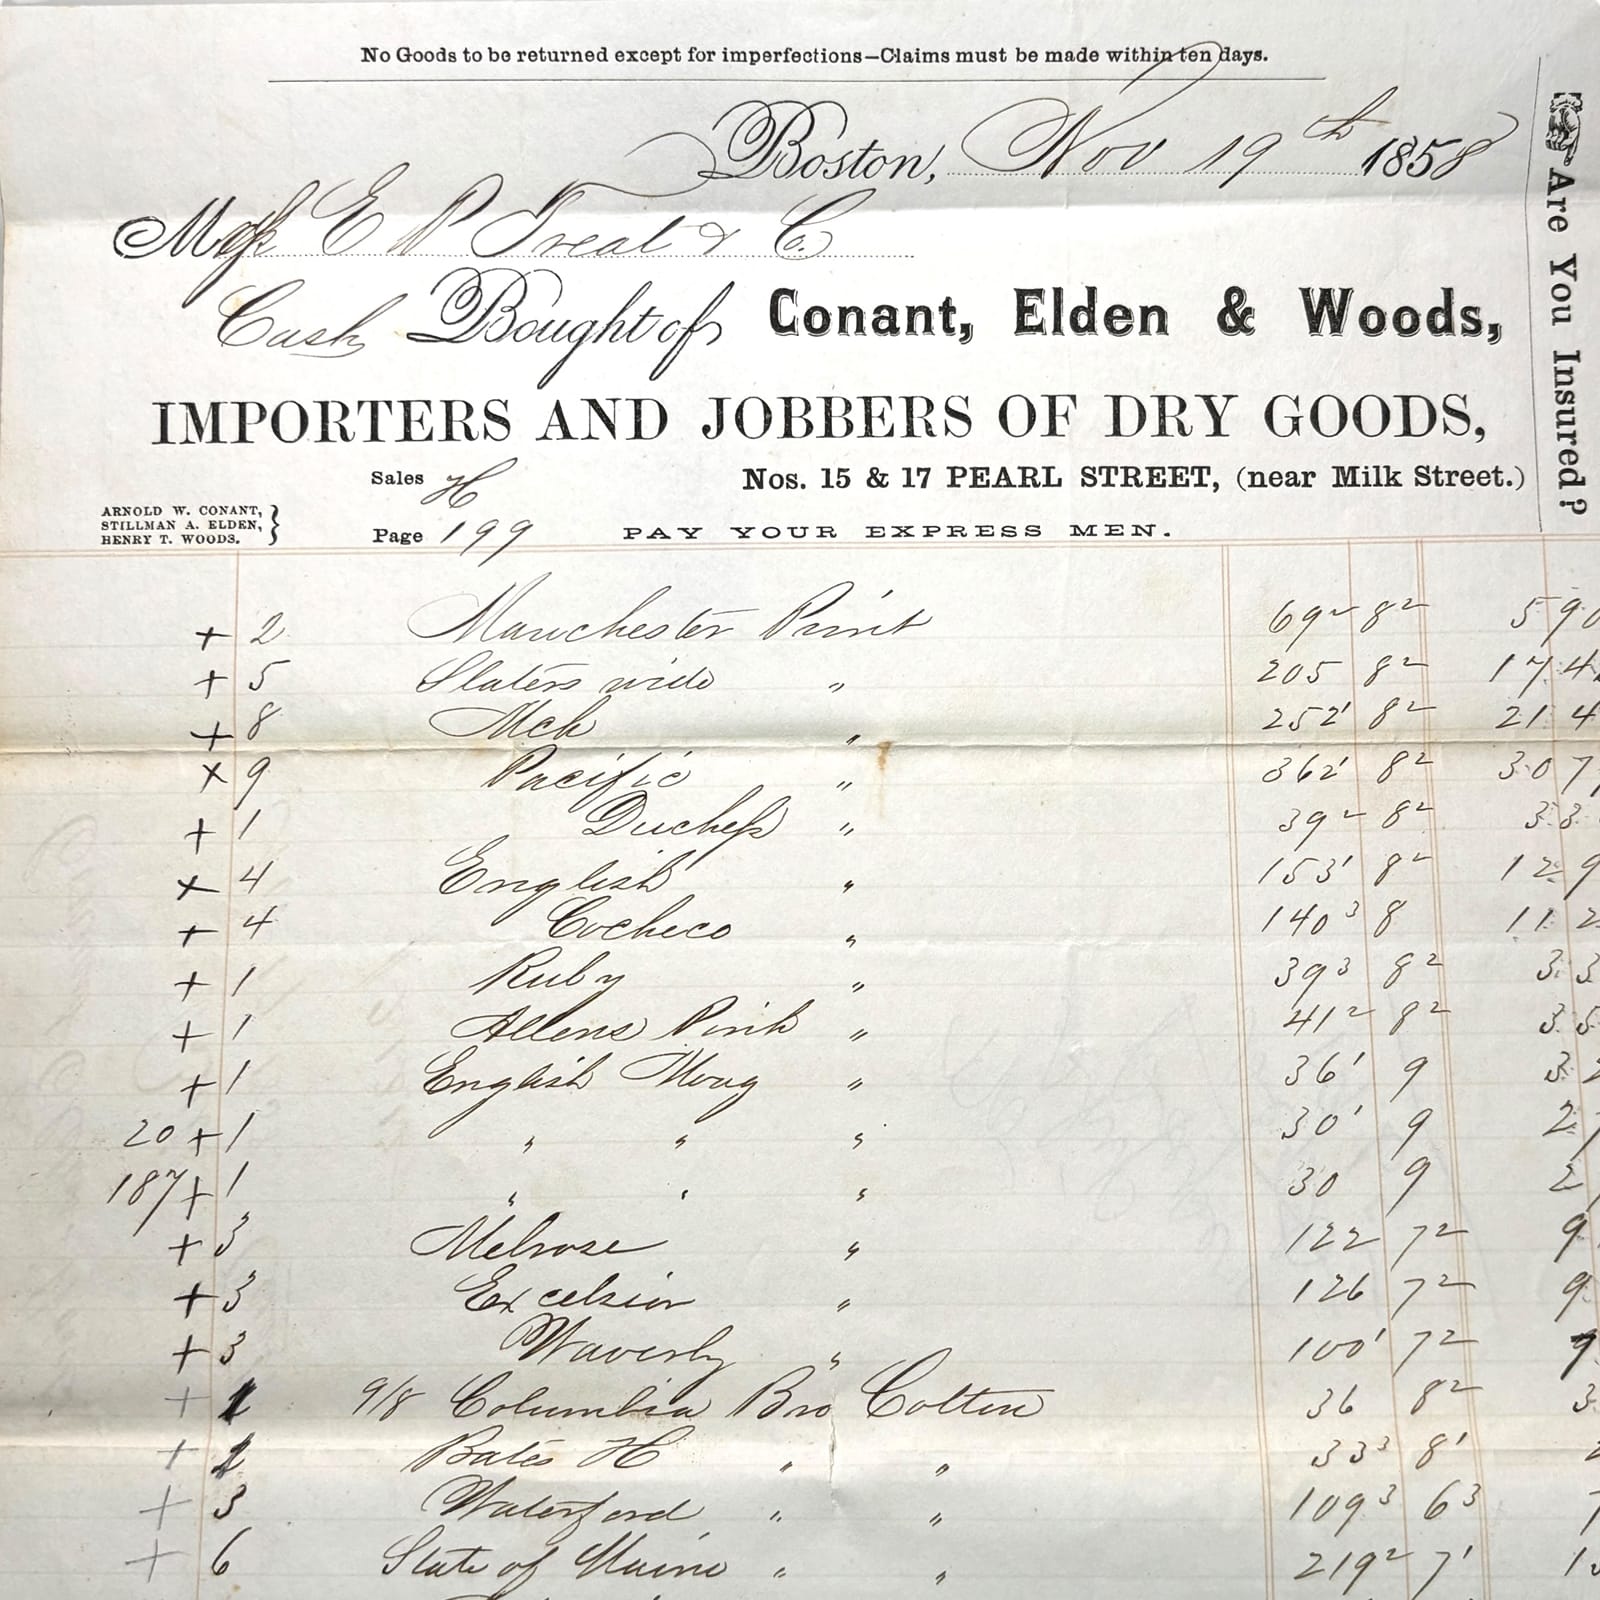 No Goods to be returned except for imperfections—Claims must be made within ten days.
Boston, Nov 19th 1858
Mess E P Treat & C.
Cash Bought of Conant, Elden & Woods,
IMPORTERS AND JOBBERS OF DRY GOODS,
Sales H Nos. 15 & 17 PEARL STREET, (near Milk Street.)
ARNOLD W. CONANT,
STILLMAN A. ELDEN,
HENRY T. WOODS.
Page 199 PAY YOUR EXPRESS MEN.
Are You Insured?
+ 2 Manchester Print 69² 8² 590
+ 5 Slaters wide " 205 8² 174
+ 8 Mck " 252¹ 8² 214
x 9 Pacific " 362¹ 8² 307
+ 1 Duchess " 39² 8² 33
x 4 English " 153¹ 8² 129
+ 4 Cocheco " 140³ 8 112
+ 1 Ruby " 39³ 8² 33
+ 1 Allens Pink " 41² 8² 35
+ 1 English Mong " 36¹ 9 32
20 + 1 " " " 30¹ 9 27
187 + 1 " " " 30 9 2
+ 3 Melrose " 122 7² 9
+ 3 Excelsior " 126 7² 9
+ 3 Waverly " 100¹ 7²
+ 1 9/8 Columbia Bro Cotton 36 8² 3
+ Bates H " " 33³ 8¹
+ 3 Waterford " " 109³ 6³
+ 6 State of Maine " " 219² 7¹